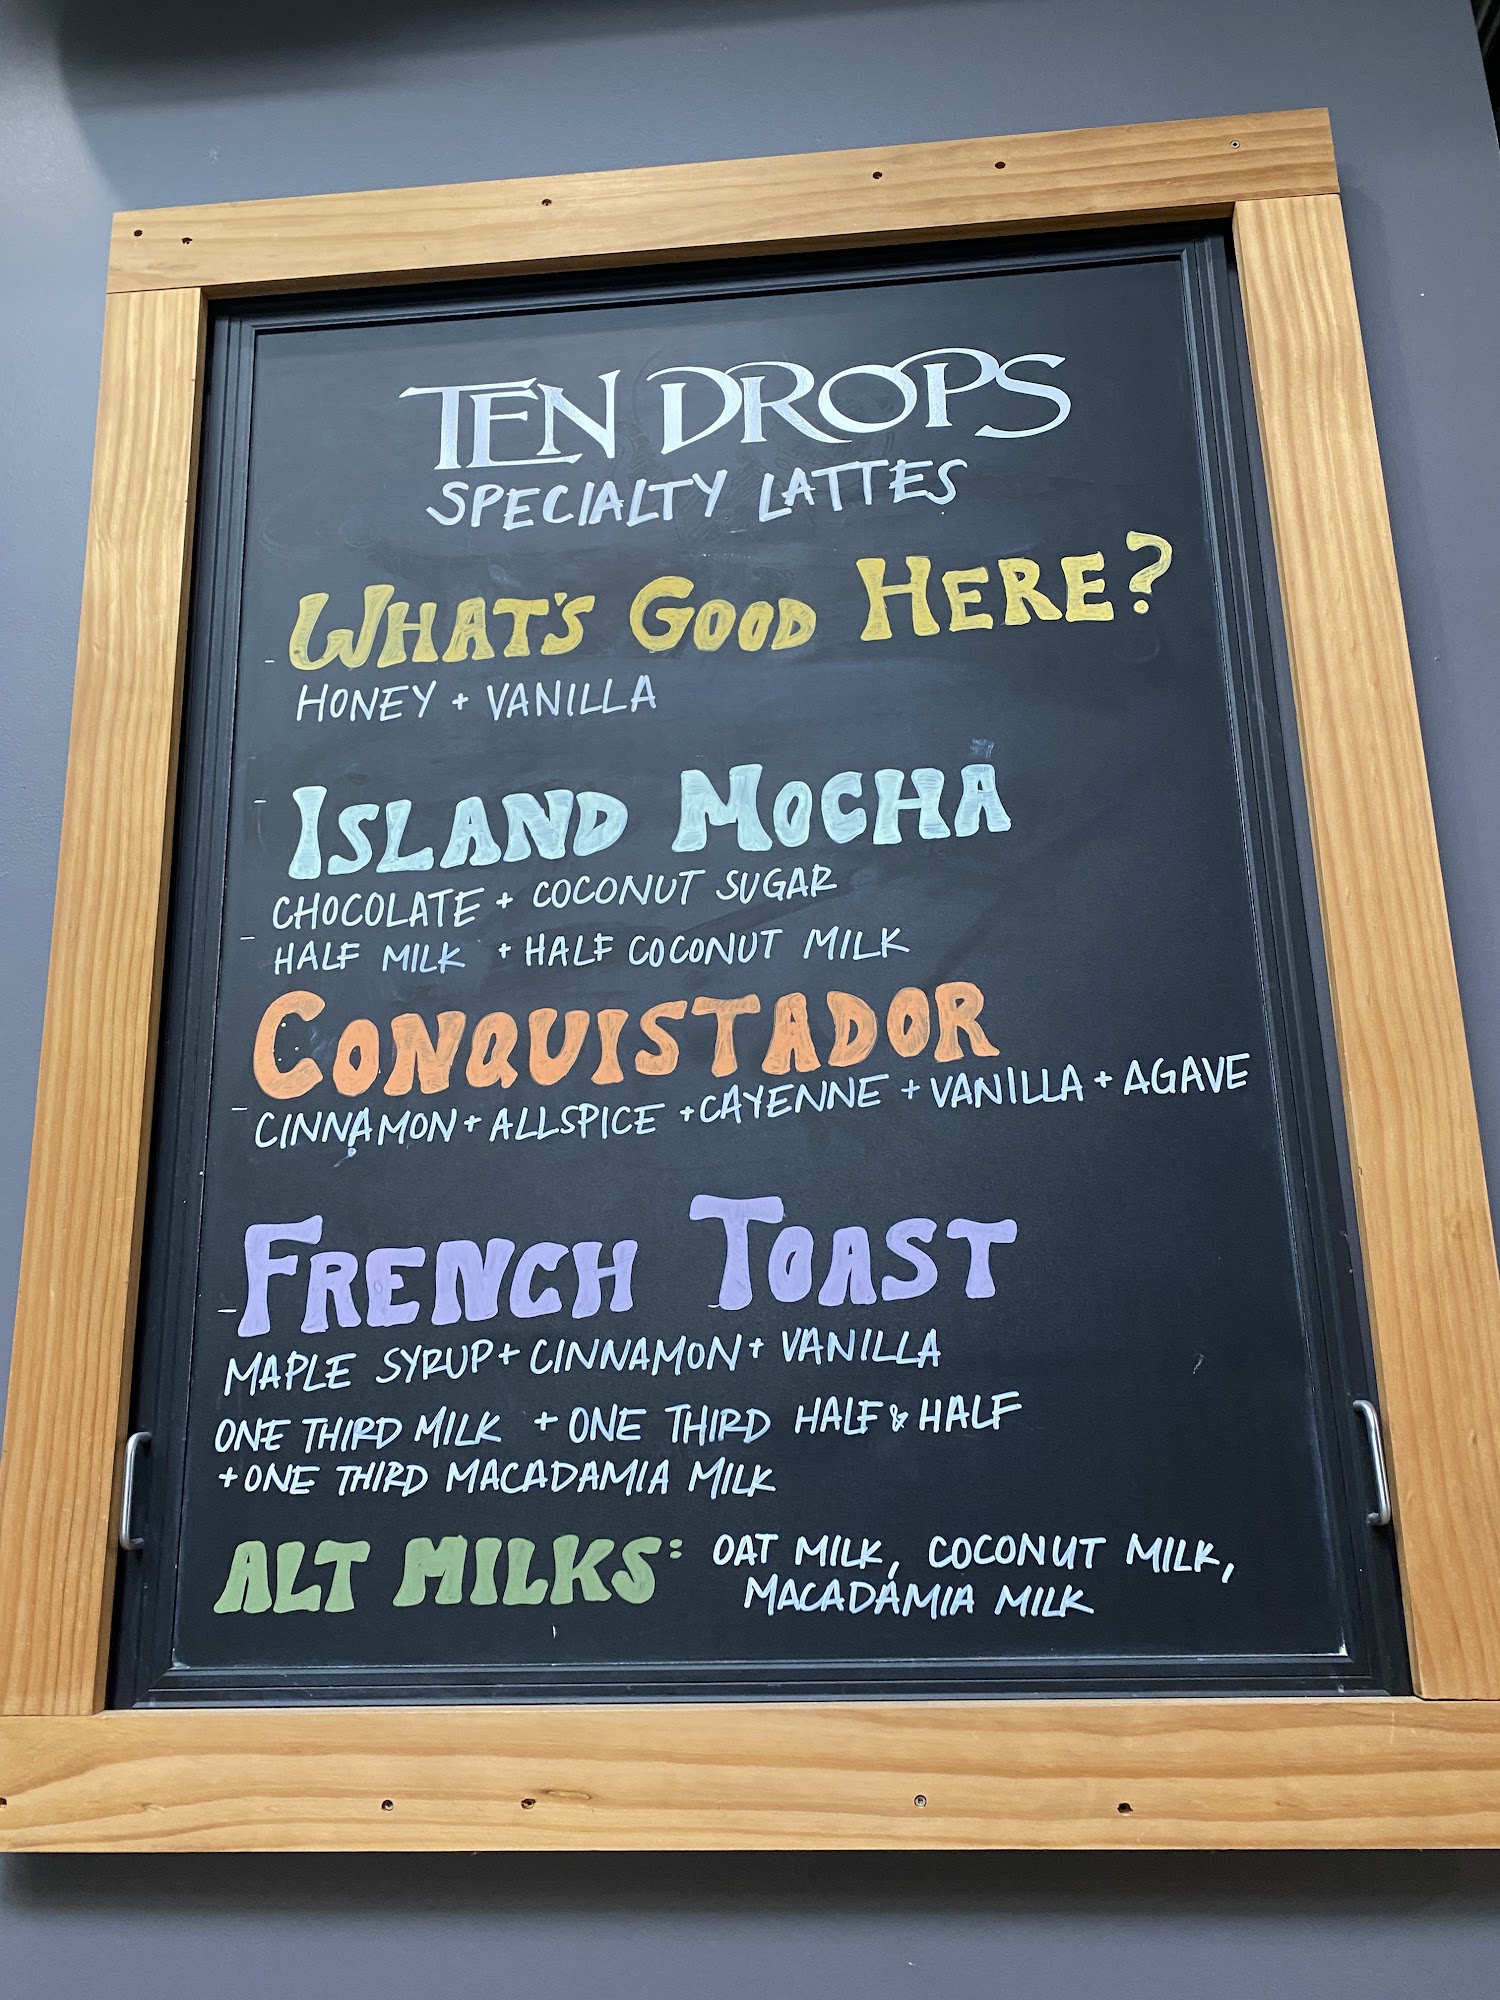 TEN DROPS
SPECIALTY LATTES
WHAT'S GOOD HERE?
HONEY + VANILLA
ISLAND MOCHA
CHOCOLATE + COCONUT SUGAR
HALF MILK + HALF COCONUT MILK
CONQUISTADOR
CINNAMON + ALLSPICE + CAYENNE + VANILLA + AGAVE
FRENCH TOAST
MAPLE SYRUP + CINNAMON + VANILLA
ONE THIRD MILK + ONE THIRD HALF & HALF
+ ONE THIRD MACADAMIA MILK
ALT MILKS: OAT MILK, COCONUT MILK,
MACADAMIA MILK